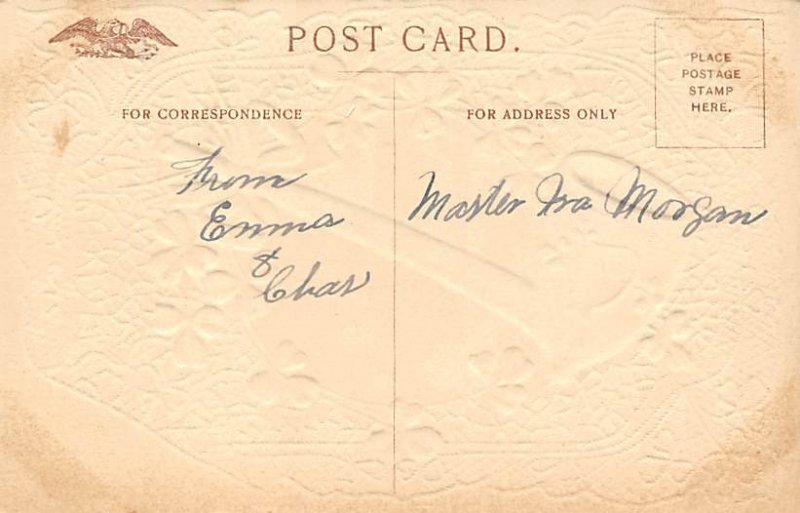 POST CARD.
PLACE
POSTAGE
STAMP
HERE.
FOR CORRESPONDENCE
FOR ADDRESS ONLY
From
Emma
&
Chas
Master Ira Morgan